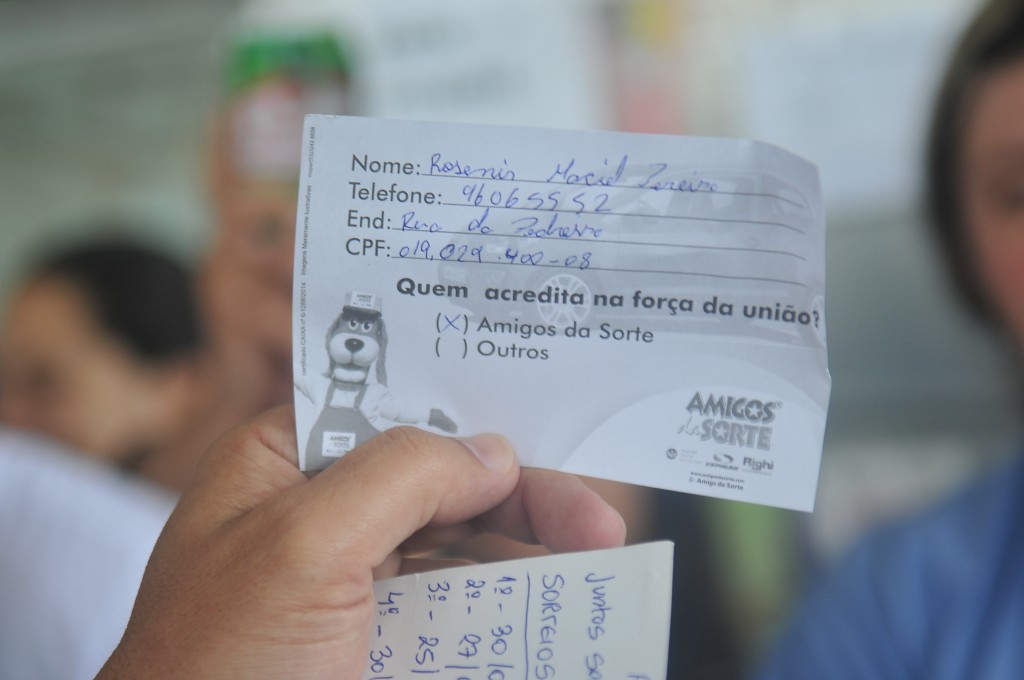 Nome: Rosenir Maciel Pereira
Telefone: 96065552
End: Rua da
CPF: 019.029.400-08
Quem acredita na força da união?
(X) Amigos da Sorte
( ) Outros
AMIGOS
da SORTE
Righi
© Amigo da Sorte
Juntos
SORTEIOS
1º - 30/0
2º - 27/
3º - 25/
4º - 30/